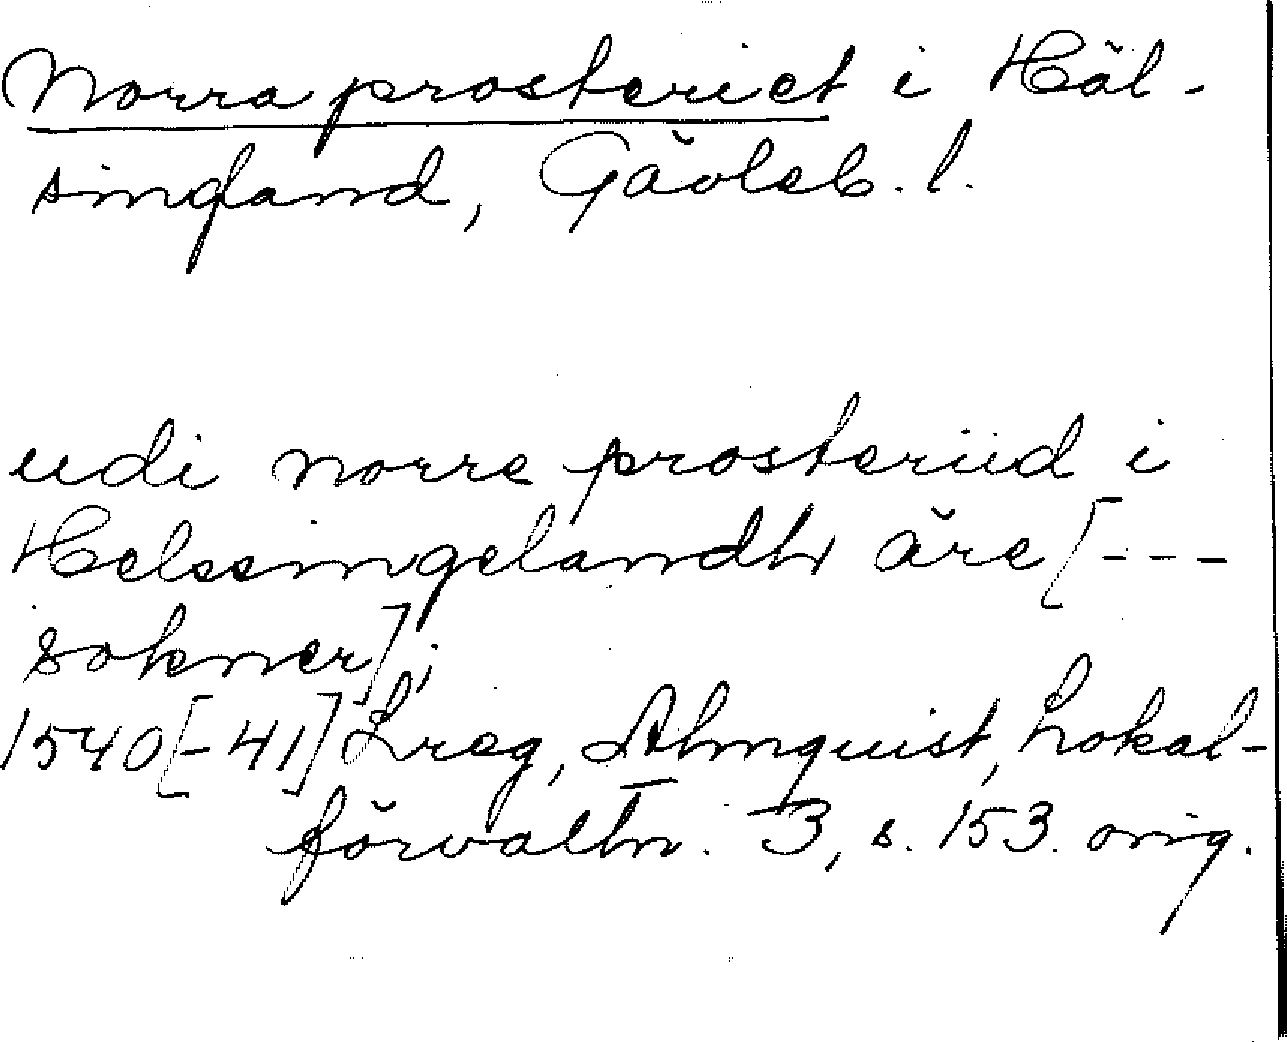 Norra prosteriet i Häl-
singland, Gävleb. l.
udi norre prosteriid i
Helssingelandh äre [---
sokner];
1540[-41] Lreg, Almquist, Lokal-
förvaltn. 3, s. 153. orig.